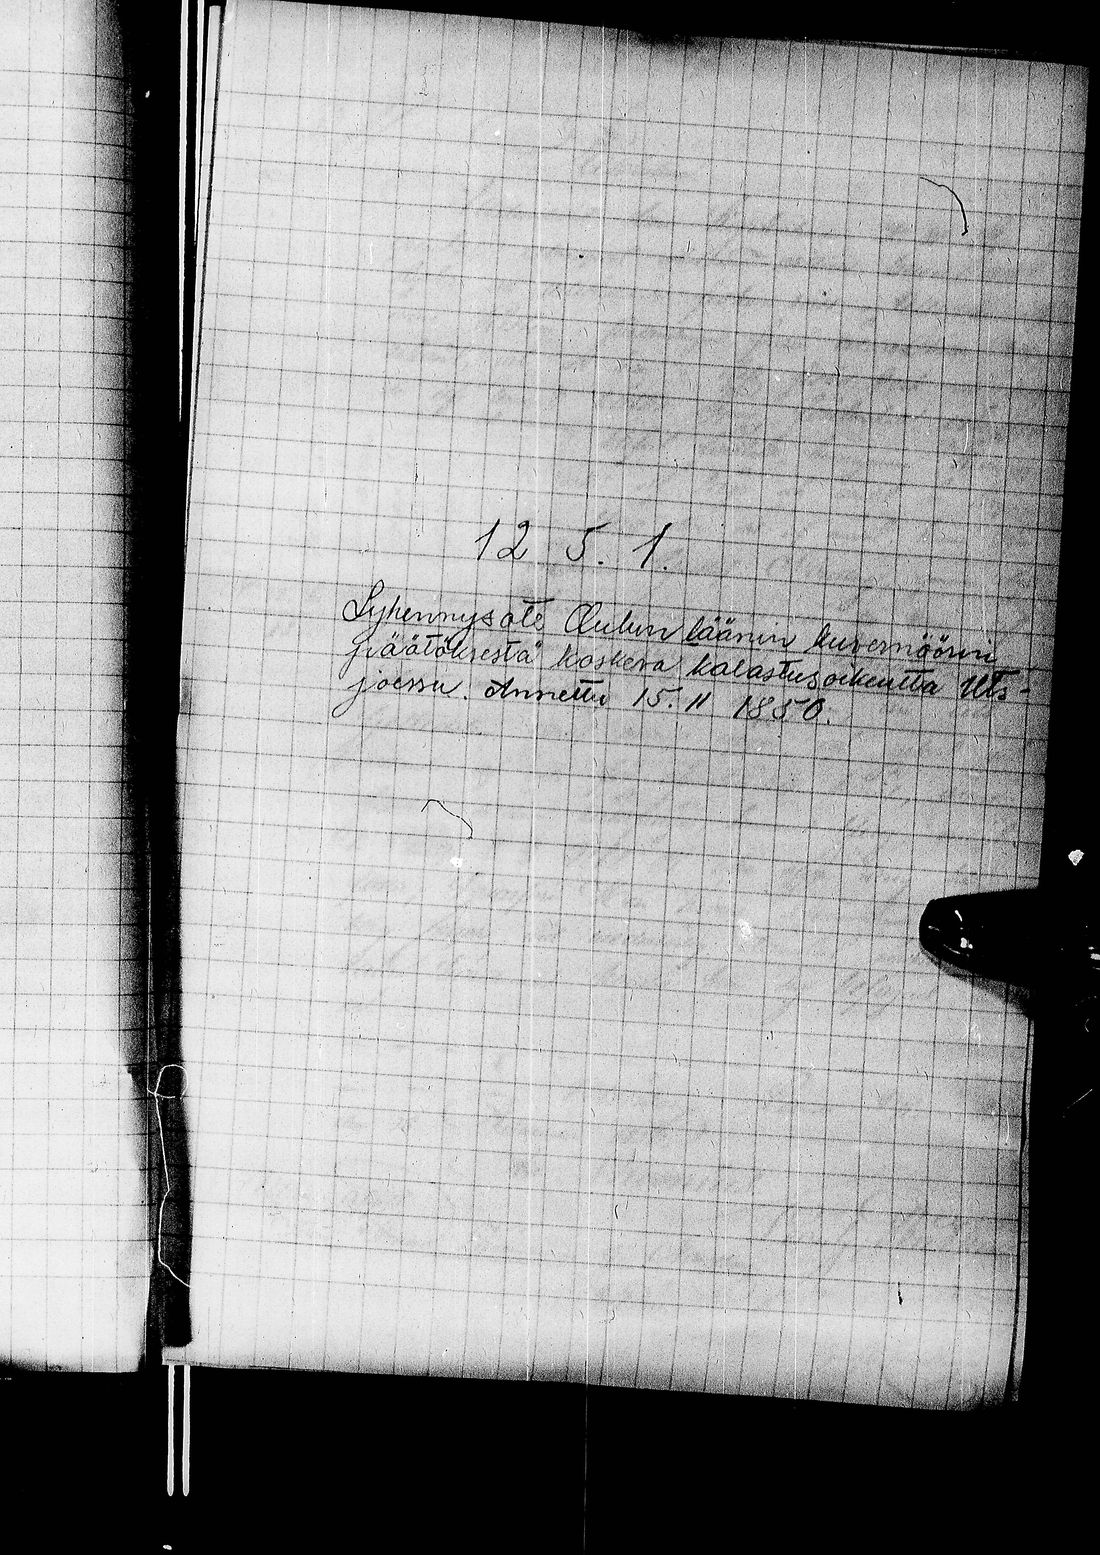 12 5. 1.
Lyhennysote Oulun läänin kuvernöörin
päätöksestä koskeva kalastusoikeutta Uts-
joessa. Annettu 15.11 1850.